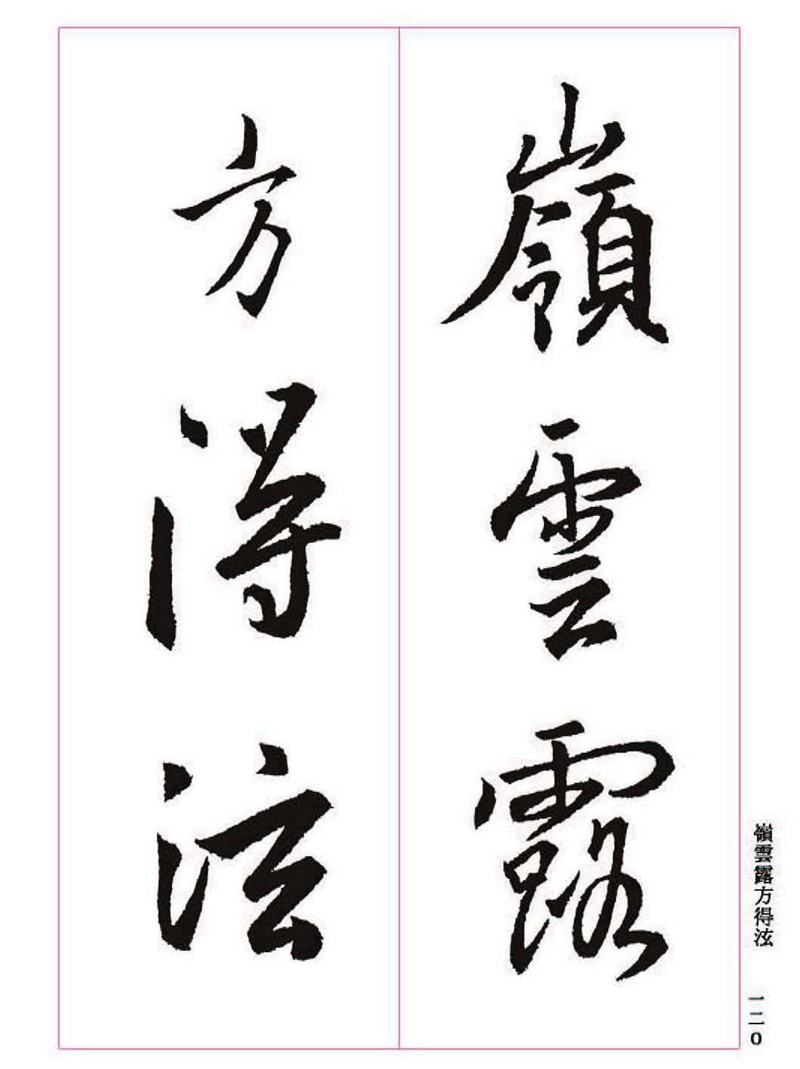 嶺雲露
方得泫
嶺雲露方得泫
一二〇